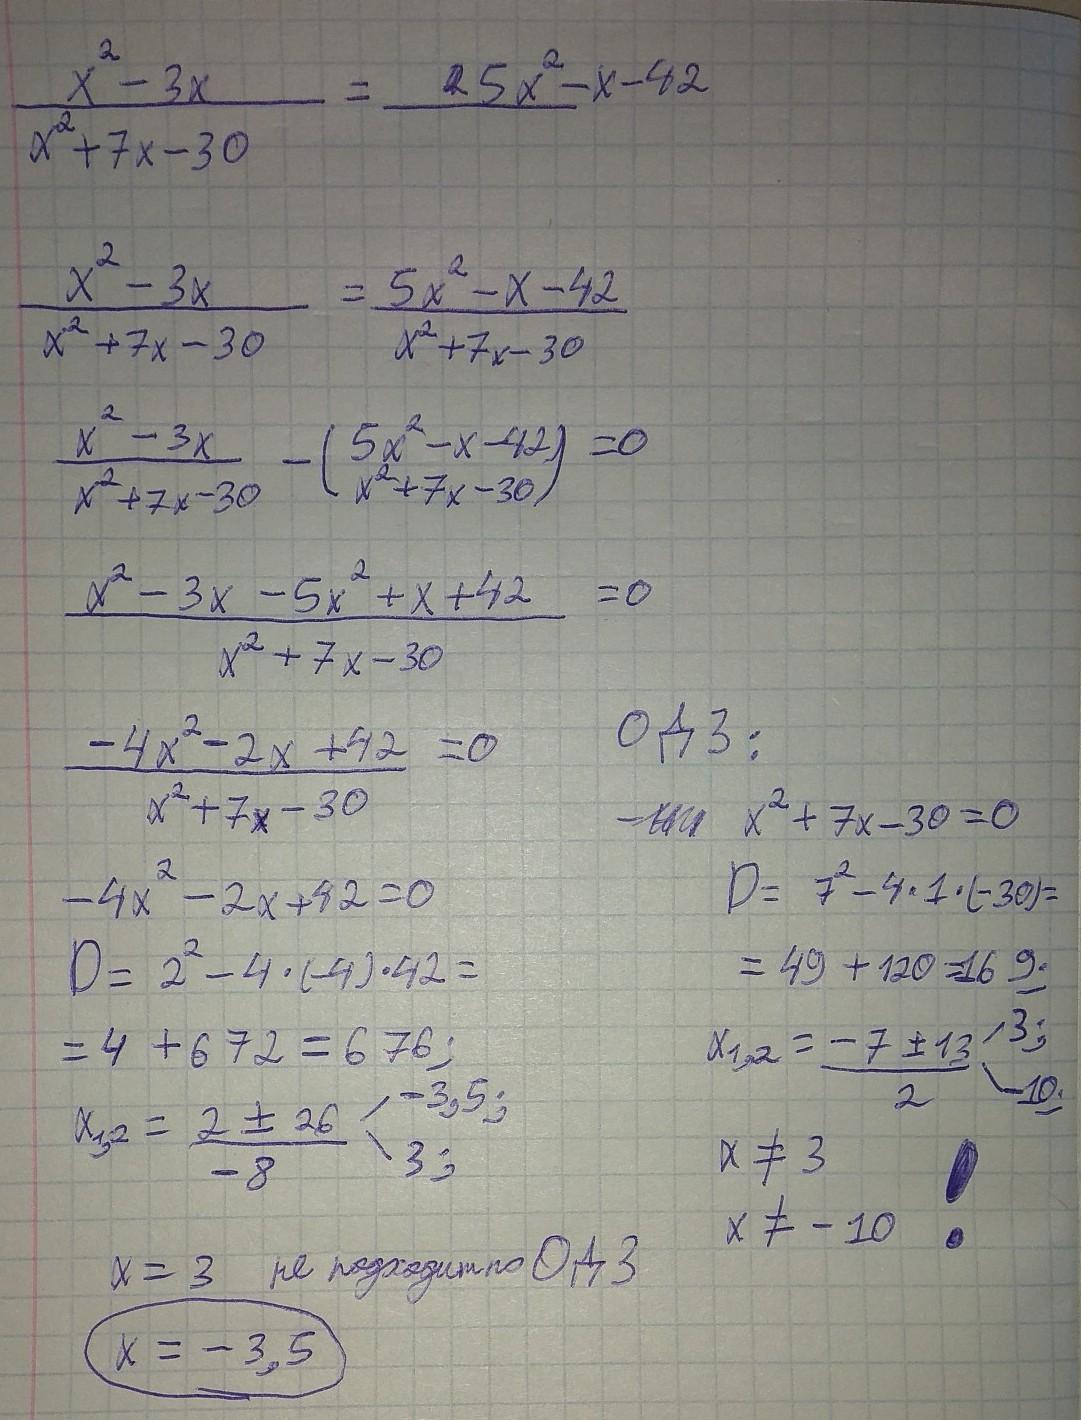 x² - 3x / x² + 7x - 30 = 25x² - x - 42
x² - 3x / x² + 7x - 30 = 5x² - x - 42 / x² + 7x - 30
x² - 3x / x² + 7x - 30 - (5x² - x - 42 / x² + 7x - 30) = 0
x² - 3x - 5x² + x + 42 / x² + 7x - 30 = 0
-4x² - 2x + 42 / x² + 7x - 30 = 0
-4x² - 2x + 42 = 0
D = 2² - 4·(-4)·42 =
= 4 + 672 = 676;
x₁,₂ = 2 ± 26 / -8 -3,5; 3;
ОДЗ:
x² + 7x - 30 = 0
D = 7² - 4·1·(-30) =
= 49 + 120 = 169;
x₁,₂ = -7 ± 13 / 2 3; -10;
x ≠ 3
x ≠ -10 !
x = 3 не подходит по ОДЗ
x = -3,5